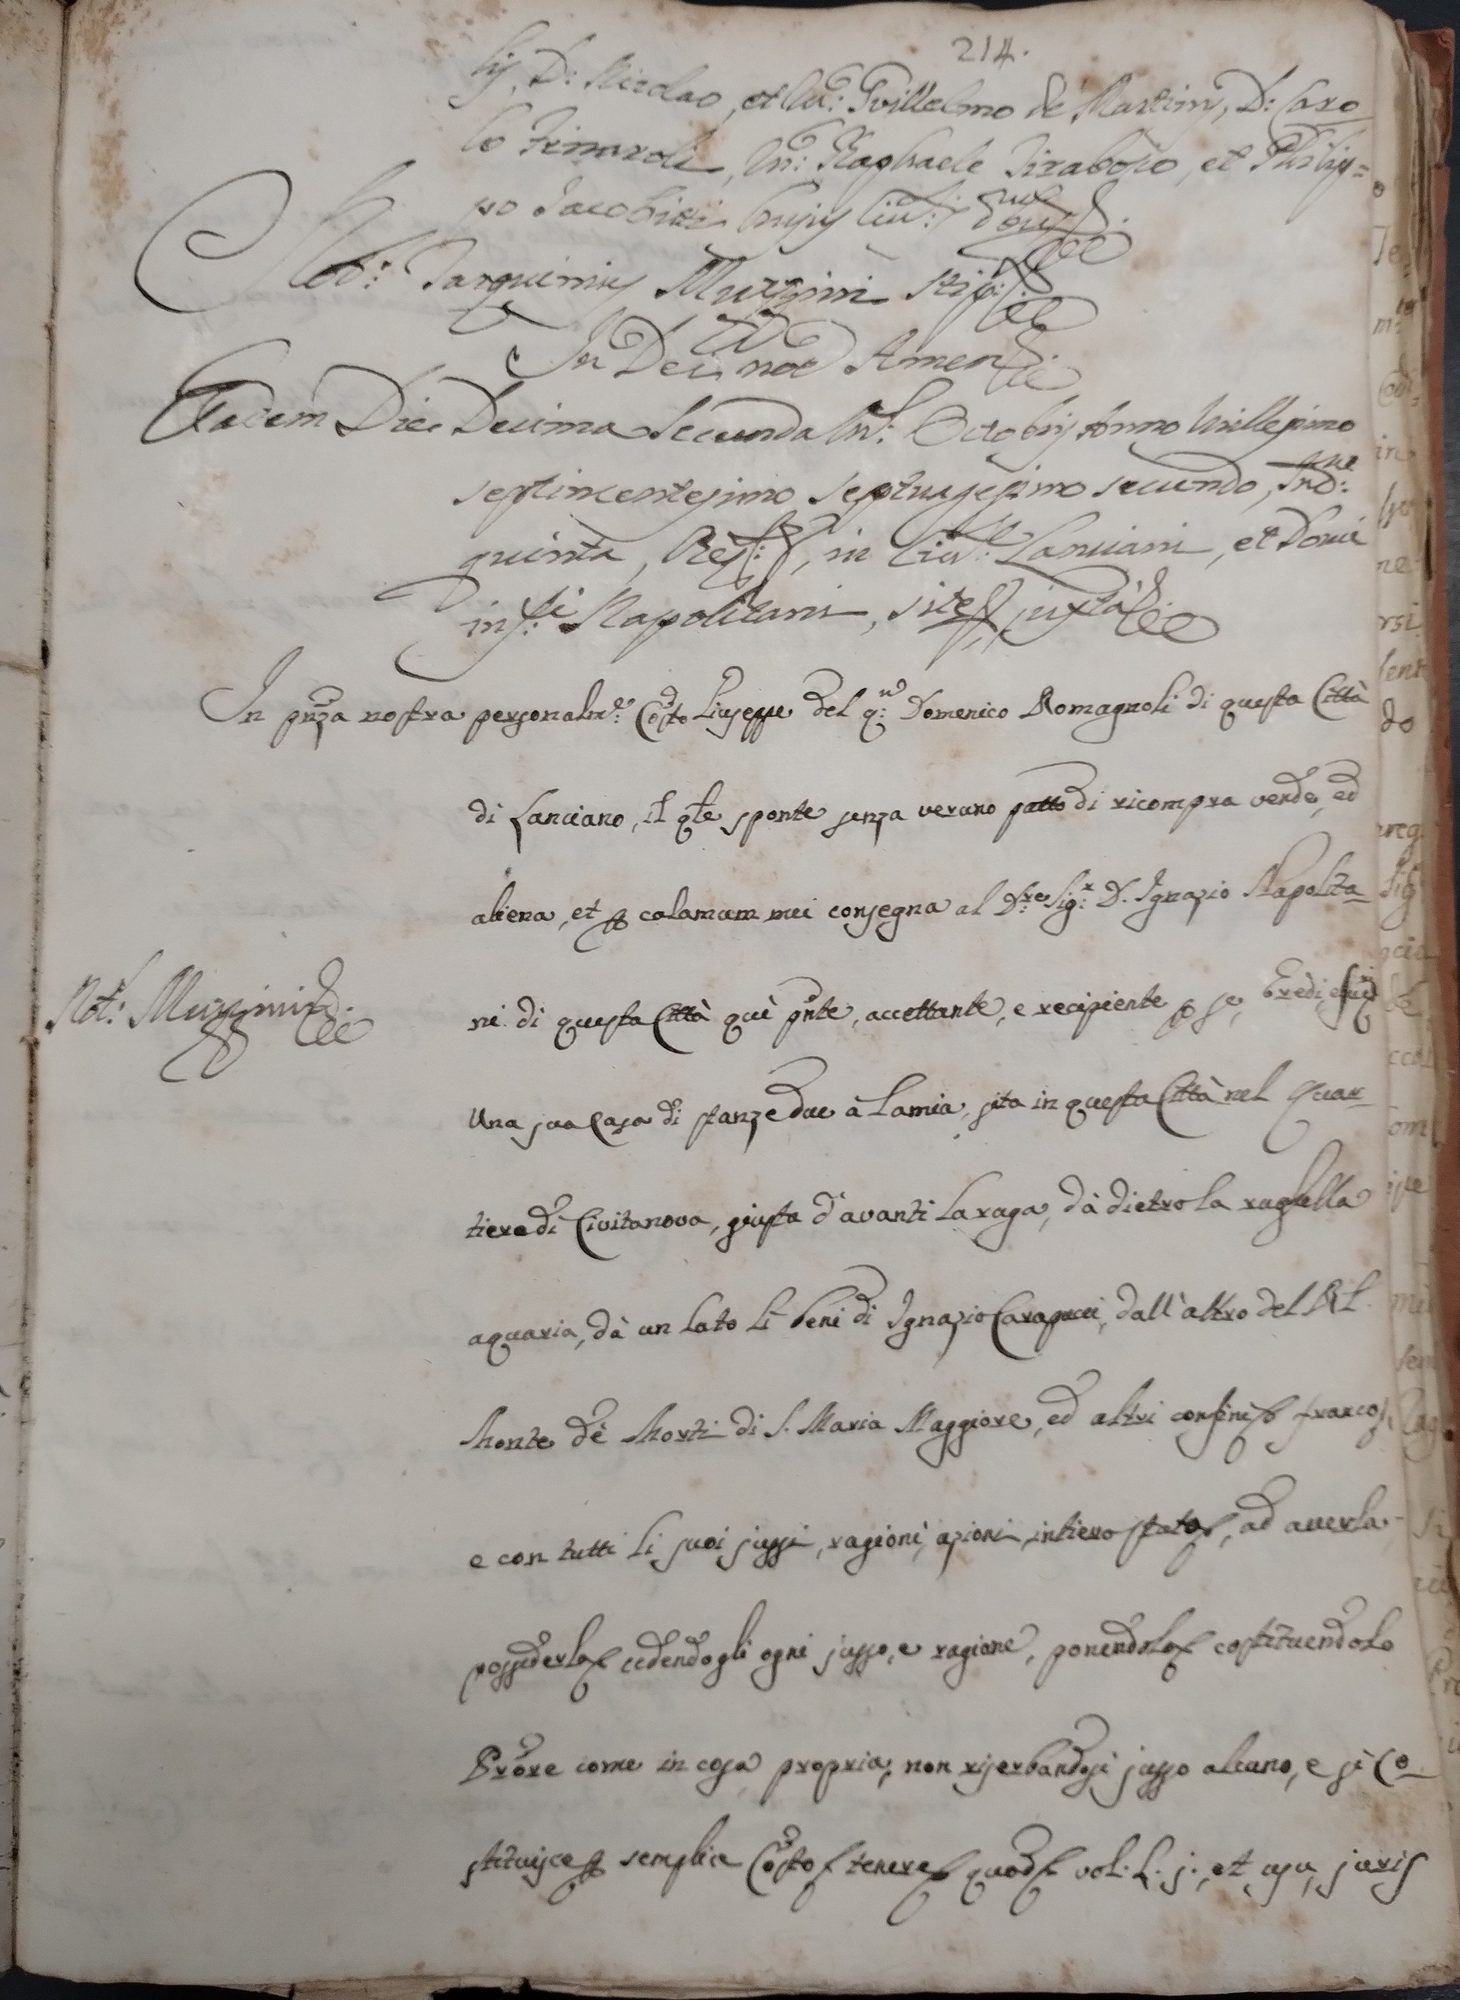 214.
lis, D: Nicolao, et Guillelmo de Martinis, D: Caro
lo Finaroli, Raphaele Tiraboso, et Philip=
po Jacobitti hujus Civ:
Not: Tarquinius Muzzini stip:
In Dei noe Amen
Eadem Die Decima Secunda Octobris Anno Millesimo
septincentesimo septuagesimo secundo, Ind:ne
quinta, Reg:, in Civ:e Lanciani, et Domi
inf:ti Napolitani, site, juxta
In pnza nostra personalm:e Costo Giuseppe del q:m Domenico Romagnoli di questa Città
di Lanciano, il qle sponte senza veruno patto di ricompra vende, ed
aliena, et p calamum mei consegna al D:re Sig:r D. Ignazio Napolita-
ni di questa Città quì pnte, accettante, e recipiente p se, Eredi,
Not: Muzzini
Una sua Casa di stanze due à Lamia, sita in questa Città nel Quar-
tiere di Civitanova, giusta d'avanti la ruga, dà dietro la rughella
aquaria, dà un lato li beni di Ignazio, dall'altro del Rl
Monte dè Morti di S. Maria Maggiore, ed altri confini franco
e con tutti li suoi jussi, ragioni, azioni, intiero stato, ad averla
possederla cedendogli ogni jusso, e ragione, ponendolo costituendolo
Prore come in cosa propria, non riserbandosi jusso alcuno, e si Co-
stituisce p semplice Costo tenere quod vol. L. s., et usu juris